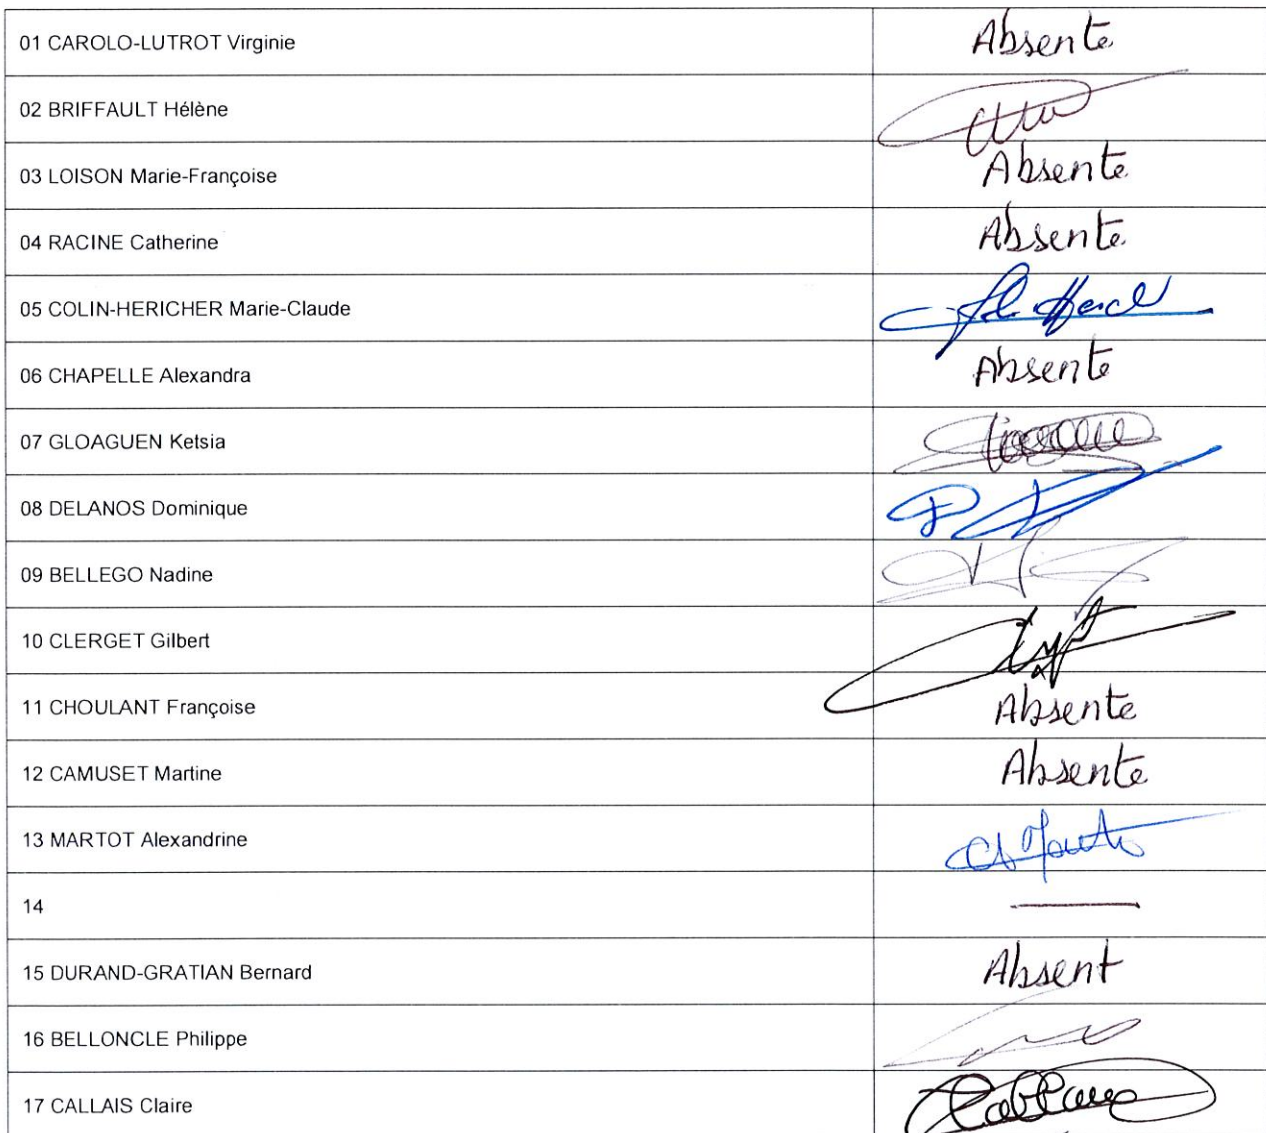 01 CAROLO-LUTROT Virginie Absente
02 BRIFFAULT Hélène
03 LOISON Marie-Françoise Absente
04 RACINE Catherine Absente
05 COLIN-HERICHER Marie-Claude
06 CHAPELLE Alexandra Absente
07 GLOAGUEN Ketsia
08 DELANOS Dominique
09 BELLEGO Nadine
10 CLERGET Gilbert
11 CHOULANT Françoise Absente
12 CAMUSET Martine Absente
13 MARTOT Alexandrine
14
15 DURAND-GRATIAN Bernard Absent
16 BELLONCLE Philippe
17 CALLAIS Claire